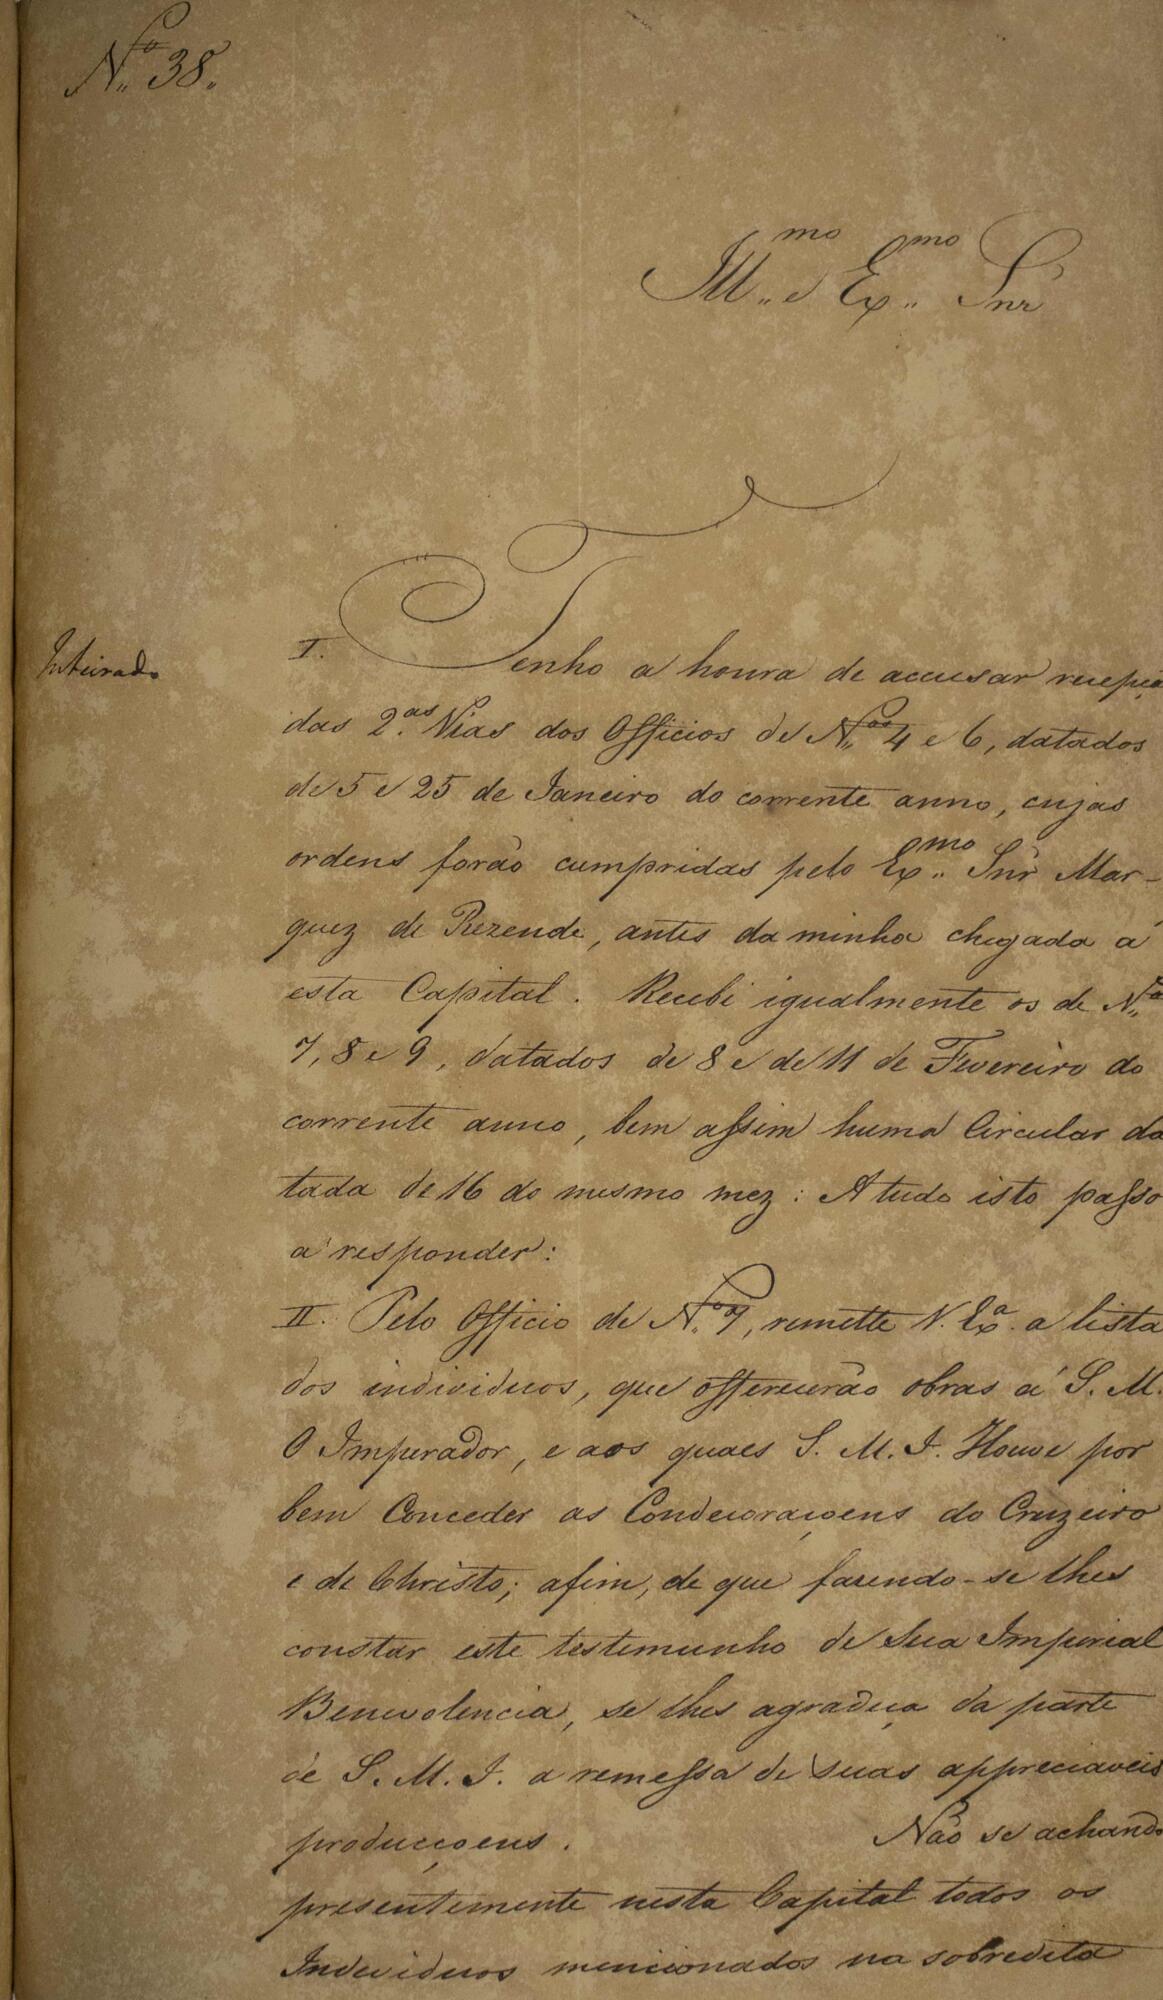 Nº 38.
Illmo e Exmo Snr
Inteirado
I. Tenho a honra de accusar recepçã
das 2.as Vias dos Officios de Nos 4 e 6, datados
de 5 e 25 de Janeiro do corrente anno, cujas
ordens forão cumpridas pelo Exmo Snr Mar-
quez de Rezende, antes da minha chegada á
esta Capital. Recebi igualmente os de Nº
7, 8 e 9, datados de 8 e de 11 de Fevereiro do
corrente anno, bem assim huma Circular da
tada de 16 do mesmo mez: A tudo isto passo
a responder:
II. Pelo Officio de Nº 7, remette V. Exa. a lista
dos individuos, que offerecerão obras á S. M.
O Imperador, e aos quaes S. M. I. Houve por
bem Conceder as Condecoraçoens do Cruzeiro
e de Christo; afim, de que fazendo-se lhes
constar este testemunho de Sua Imperial
Benevolencia, se lhes agradeça da parte
de S. M. I. a remessa de suas appreciaveis
producçoens. Não se achando
presentemente nesta Capital todos os
Individuos mencionados na sobredita